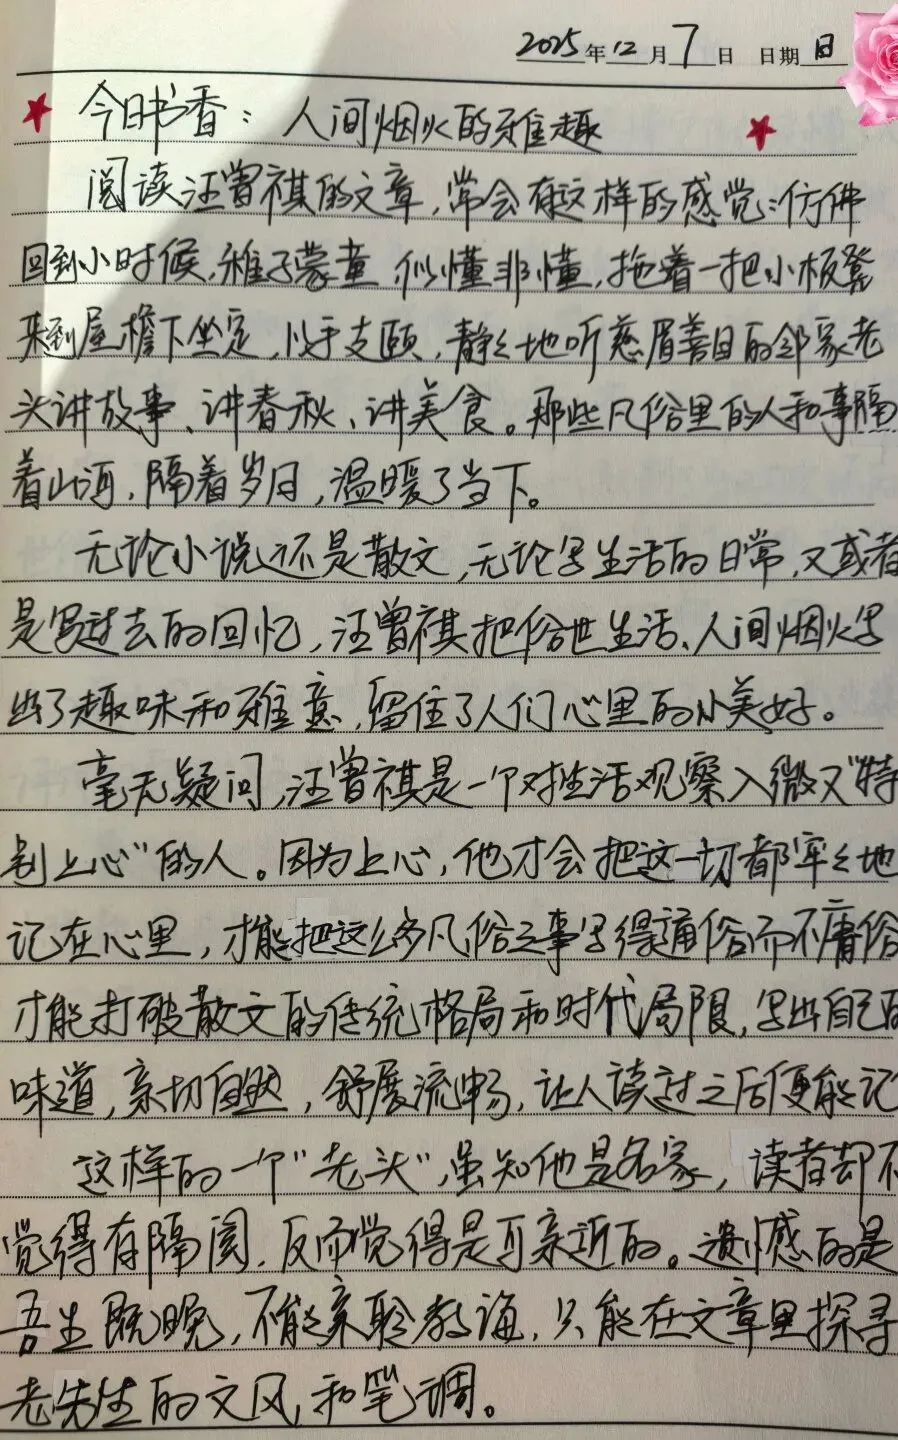 2025年12月7日 日期 日
今日书香：人间烟火的雅趣
阅读汪曾祺的文章，常会有这样的感觉：仿佛
回到小时候，稚子蒙童，似懂非懂，拖着一把小板凳
来到屋檐下坐定，以手支颐，静々地听慈眉善目的邻家老
头讲故事、讲春秋、讲美食。那些凡俗里的人和事隔
着山河，隔着岁月，温暖了当下。
无论小说还是散文，无论写生活的日常，又或者
是写过去的回忆，汪曾祺把俗世生活、人间烟火写
出了趣味和雅意，留住了人们心里的小美好。
毫无疑问，汪曾祺是一个对生活观察入微又“特
别上心”的人。因为上心，他才会把这一切都牢々地
记在心里，才能把这么多凡俗之事写得通俗而不庸俗
才能打破散文的传统格局和时代局限，写出自己的
味道，亲切自然，舒展流畅，让人读过之后便能记
这样的一个“老头”，虽知他是名家，读者却不
觉得有隔阂，反而觉得是可亲近的。遗憾的是
吾生既晚，不能亲聆教诲，只能在文章里探寻
老先生的文风，和笔调。